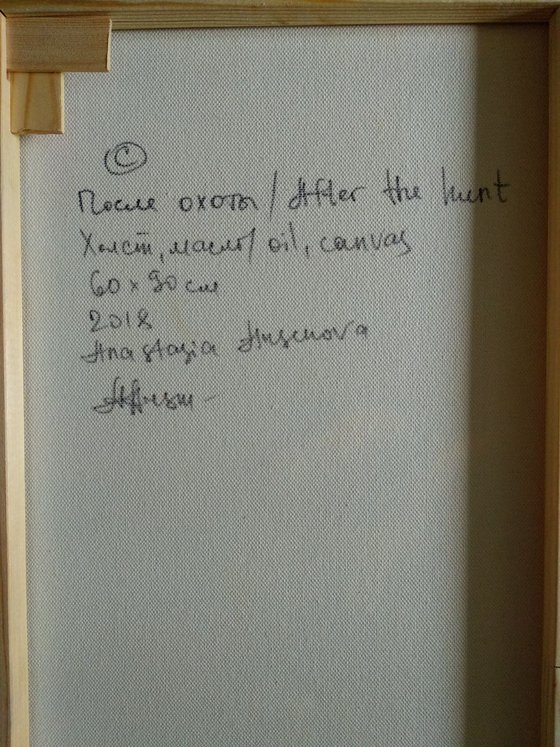 ©
После охоты / After the hunt
Холст, масло/ oil, canvas
60 x 90 см
2018
Anastasia